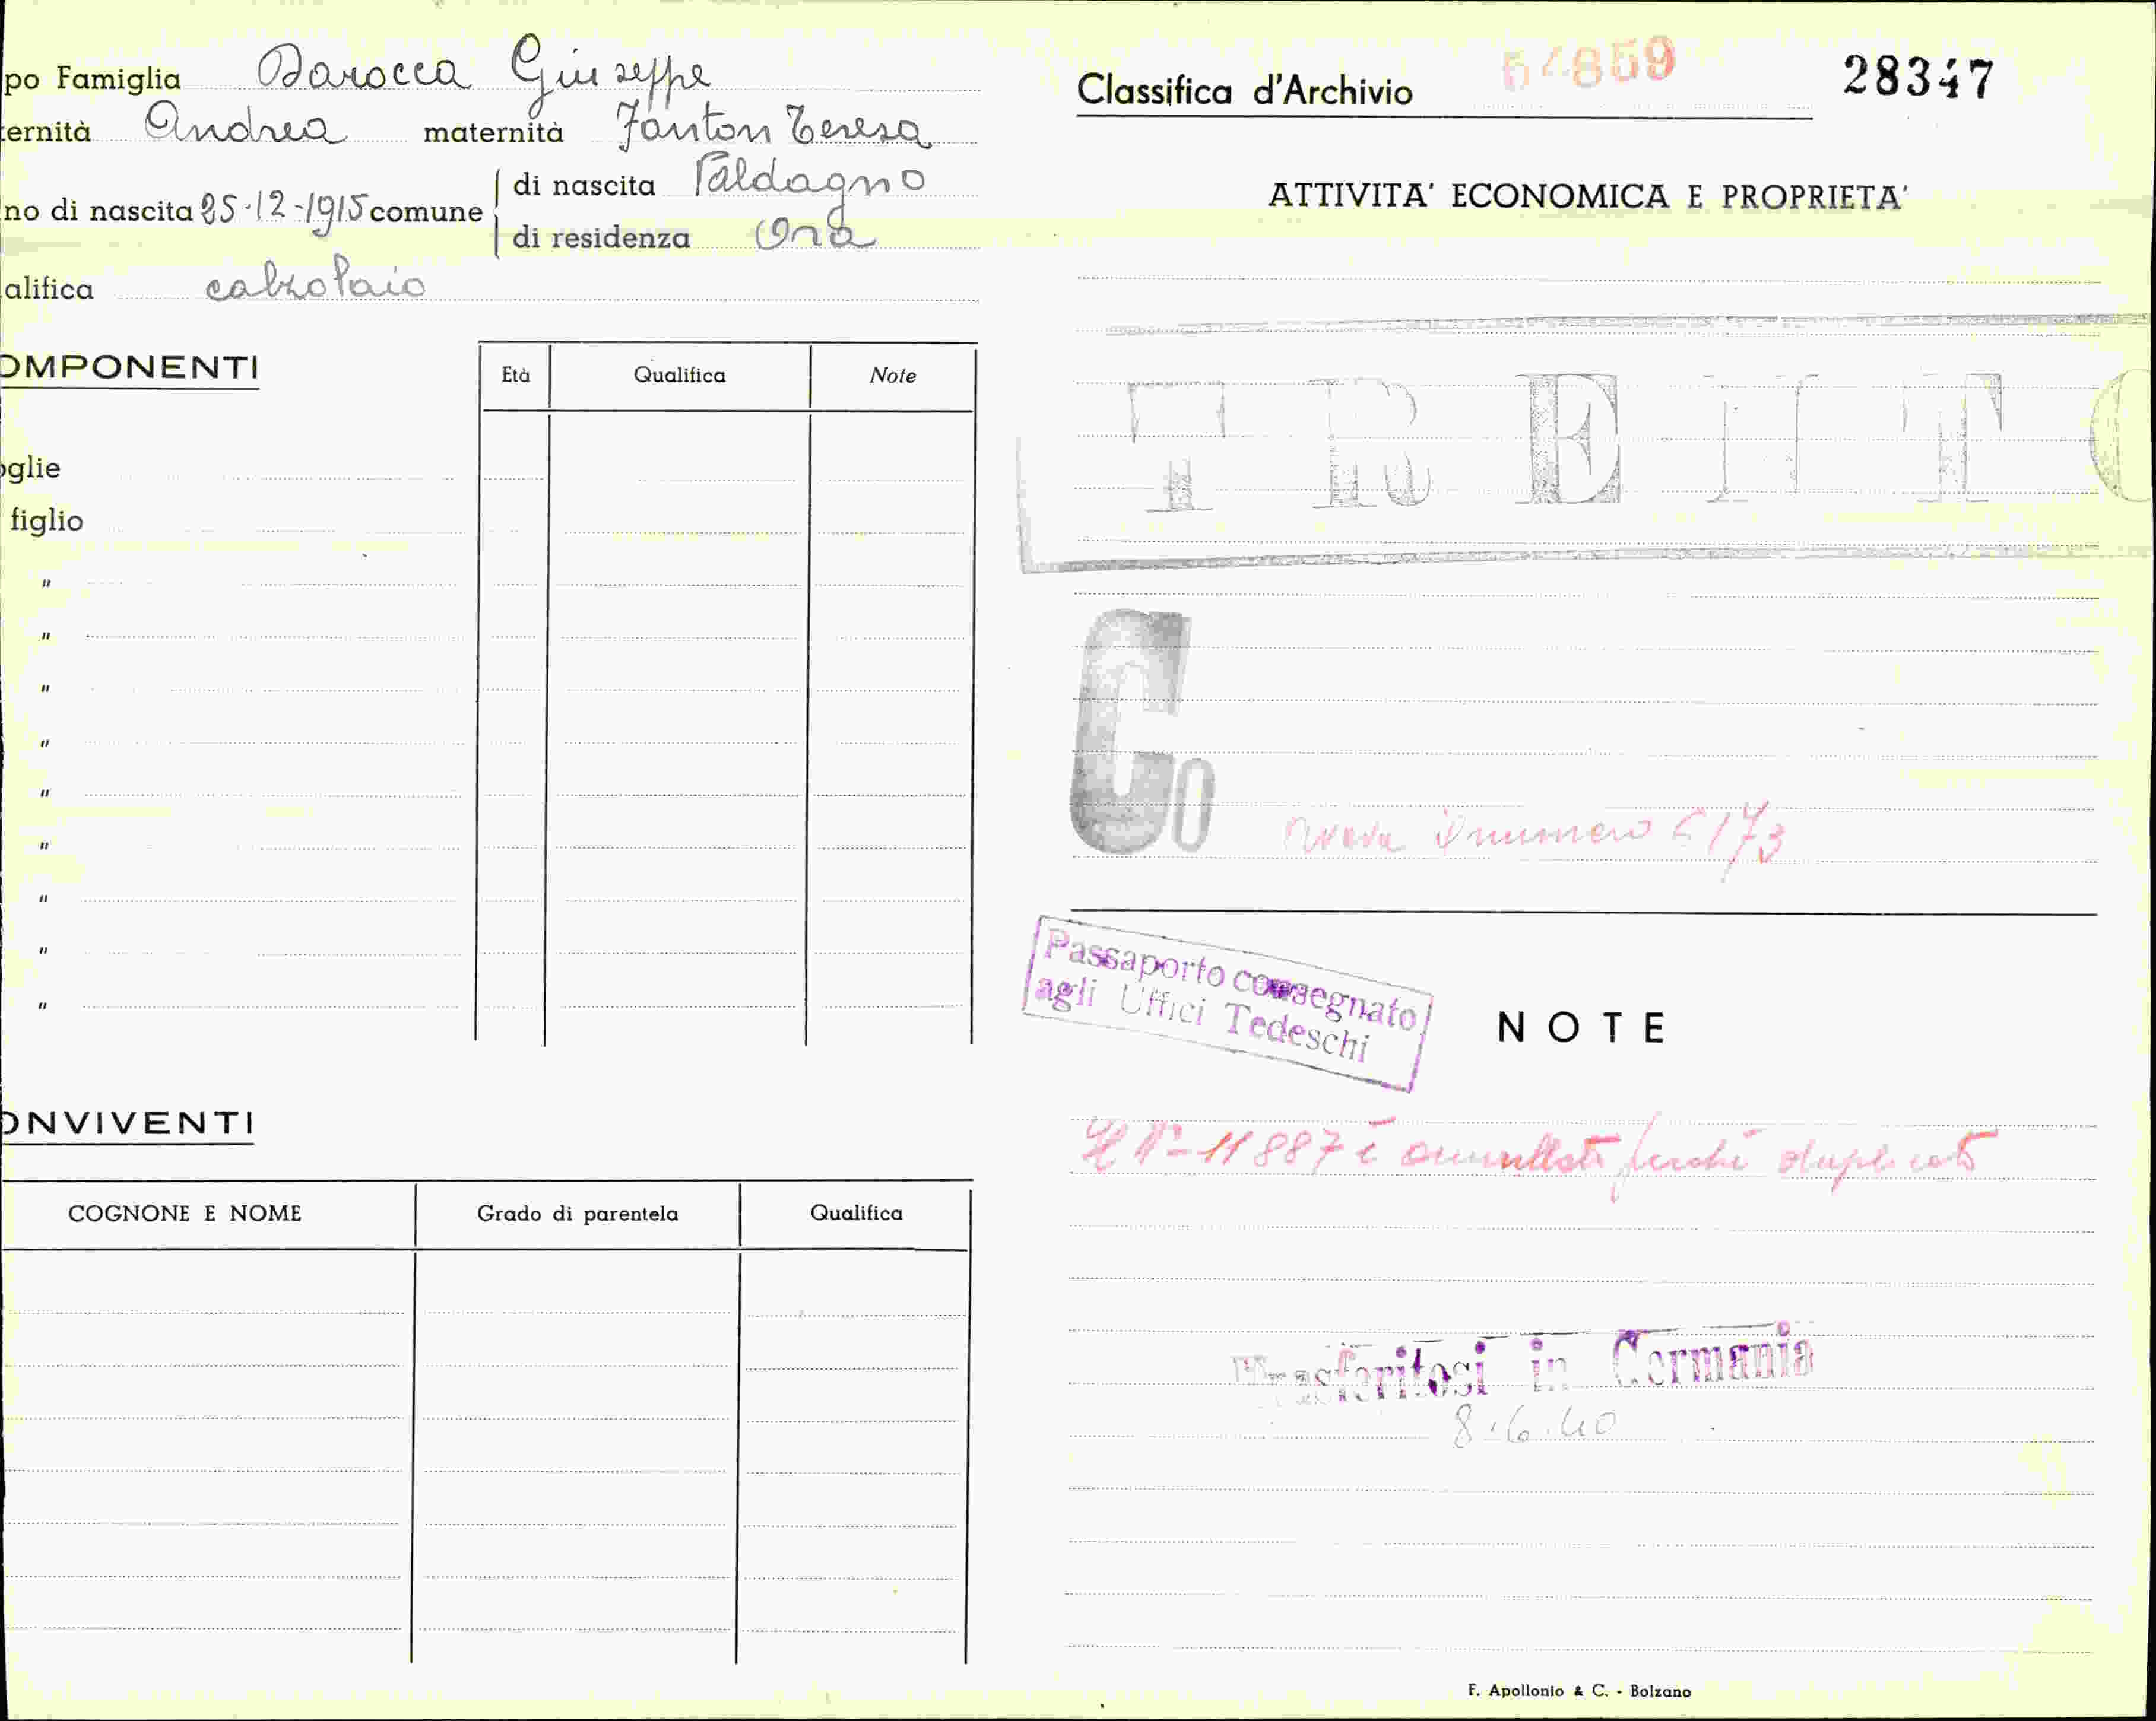 po Famiglia Barocca Giuseppe
ernità Andrea maternità Fanton Teresa
no di nascita 25-12-1915 comune
di nascita Valdagno
di residenza Ora
alifica calzolaio
OMPONENTI
Età Qualifica Note
oglie
figlio
"
"
"
"
"
"
"
"
"
ONVIVENTI
COGNONE E NOME Grado di parentela Qualifica
Classifica d'Archivio 54859 28347
ATTIVITA' ECONOMICA E PROPRIETA'
TRENTO
Co
il numero 5173
Passaporto consegnato
agli Uffici Tedeschi
NOTE
Il N° 11887 è annullato perché duplicato
Trasferitosi in Germania
8.6.40
F. Apollonio & C. - Bolzano